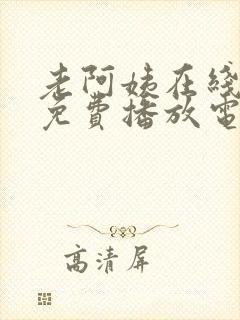 老阿姨在线
免費播放電
高清屏